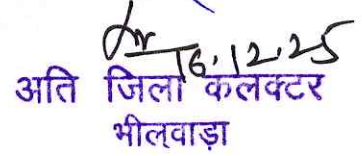 16.12.25
अति जिला कलक्टर
भीलवाड़ा